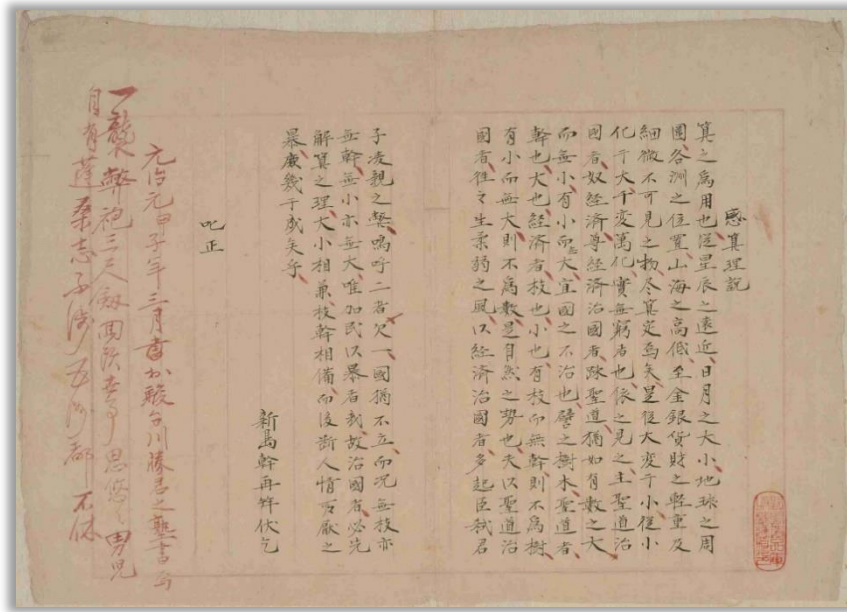 感算理説
算之為用也従星辰之遠近日月之大小地球之周
圍各洲之位置山海之高低至金銀貨財之軽重及
細微不可見之物尽算定焉矣是従大変于小従小
化于大千変萬化實無窮者也依之見之主聖道治
國者奴経済専経済治國者疎聖道猶如有數之大
而無小有小而無大宜國之不治也譬之樹木聖道者
幹也大也経済者枝也小也有枝而無幹則不為樹
有小而無大則不為數是自然之勢也夫以聖道治
國者往々生柔弱之風以経済治國者多起臣弑君
子凌親之弊嗚呼二者欠一國猶不立而況無枝亦
無幹無小亦無大唯加民以暴者哉故治國者必先
解算之理大小相兼枝幹相備而後断人情所厭之
暴庶幾于成矣乎
新島幹再拝伏乞
叱正
元治元甲子年三月
一襲弊袍三尺剣
自有蓬桑志不渉五洲都不休